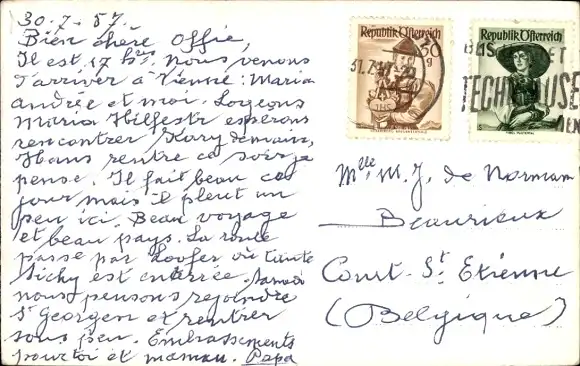 30.7.57.
Bien chère Offie,
Il est 17 hrs. Nous venons
d'arriver à Vienne: Maria
andrée et moi. Logeons
Maria Hilfestr espérons
rencontrer Karry demain,
Hans rentre ce soir je
pense. Il fait beau ce
jour mais il pleut un
peu ici. Beau voyage
et beau pays. La route
passe par où tante
Sichy est enterrée. Samedi
nous pensons rejoindre
St Georgen et rentrer
sous peu. Embrassements
pour toi et maman. Papa
Republik Österreich
50 g
31.7.57
Republik Österreich
Mlle M. J. de Norman
Beaurieux
Court-St Etienne
(Belgique)